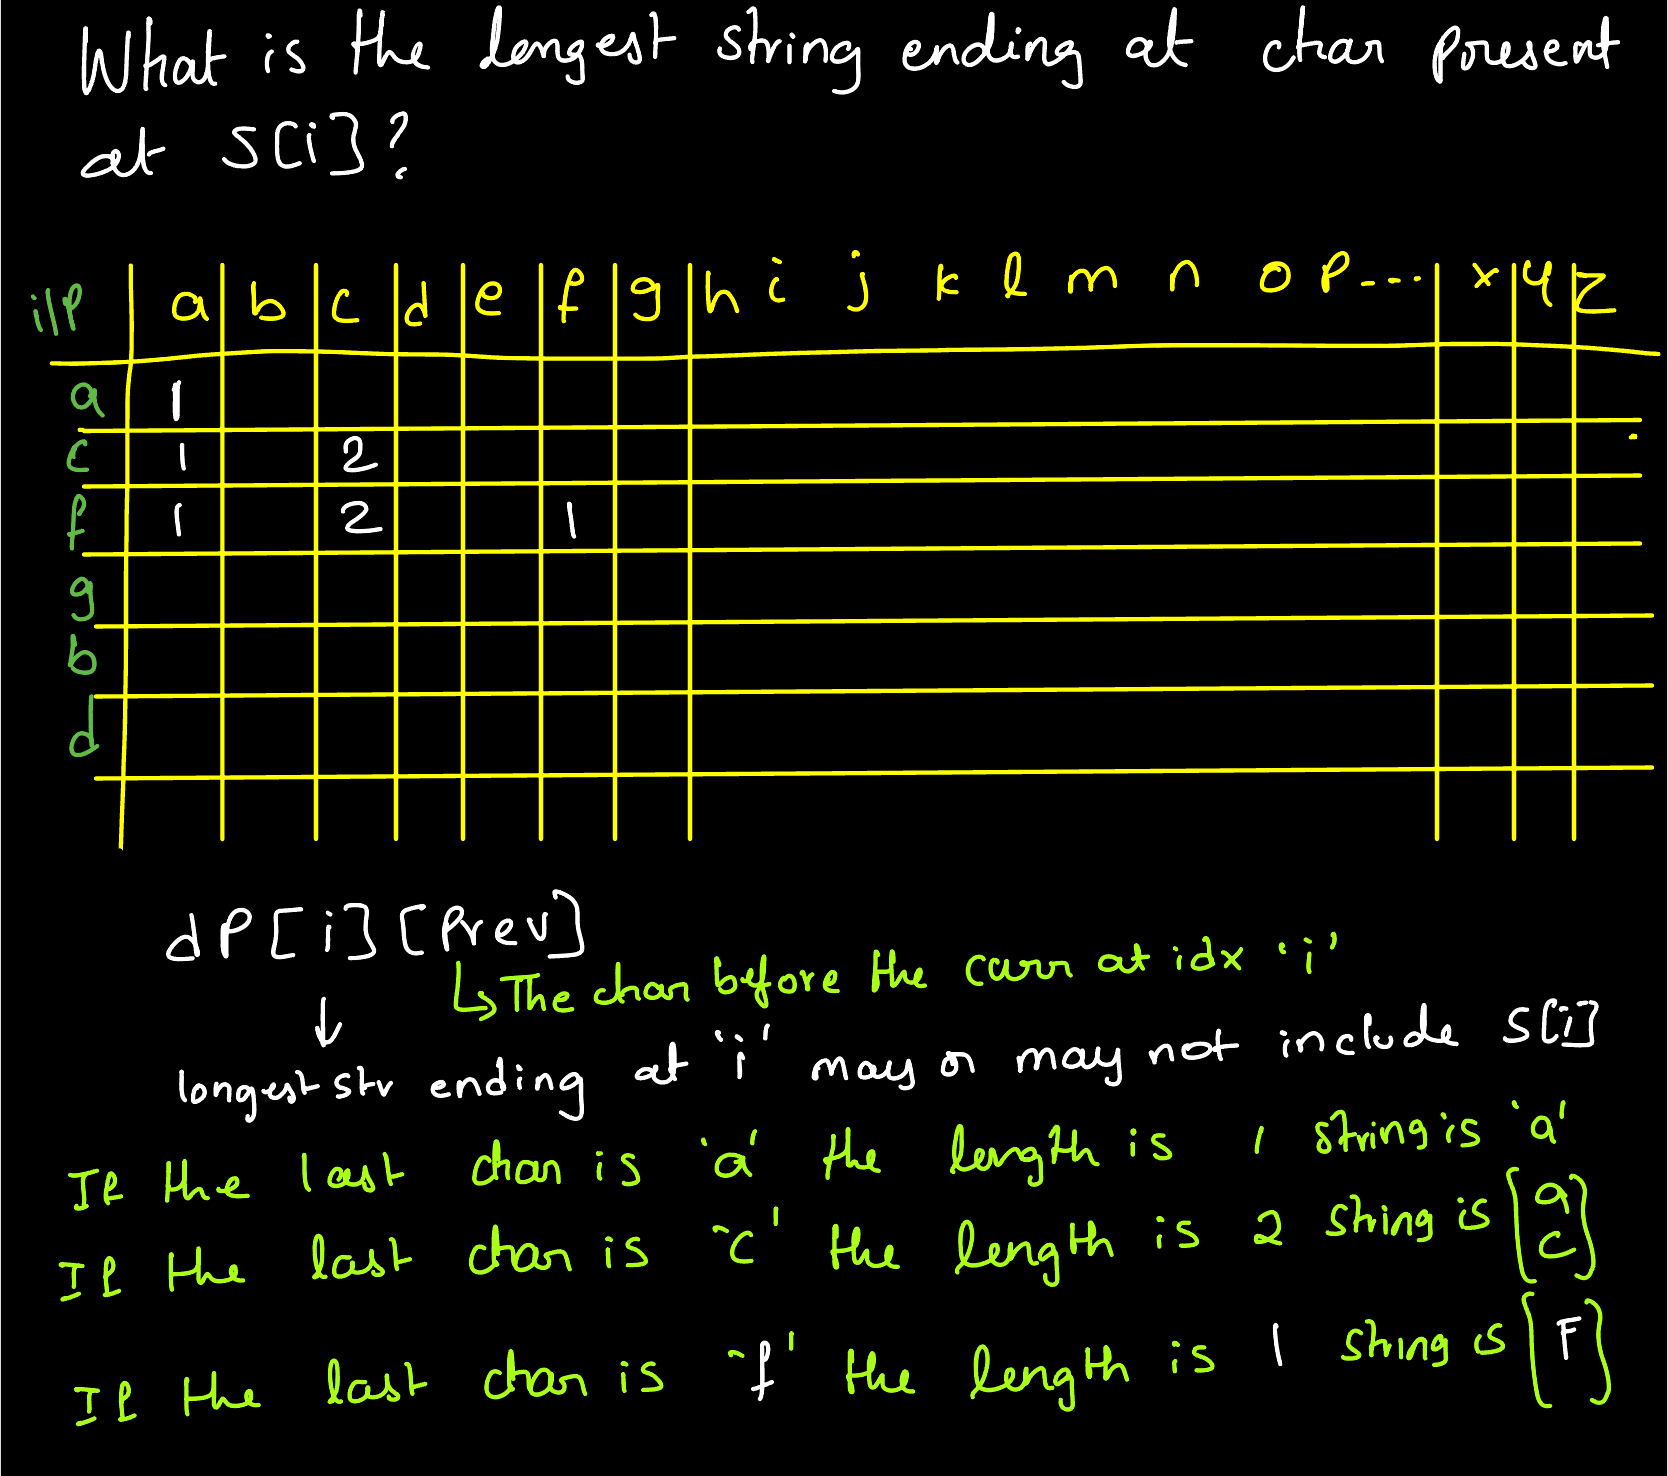 What is the longest string ending at char present
at S[i]?
i/P a b c d e f g h i j k l m n o p--- x y z
a 1
c 1 2
f 1 2 1
g
b
d
dP[i][Prev]
↳ The char before the curr at idx 'i'
↓
longest str ending at 'i' may or may not include S[i]
If the last char is 'a' the length is 1 string is 'a'
If the last char is 'c' the length is 2 string is [a
c]
If the last char is 'f' the length is 1 string is [F]